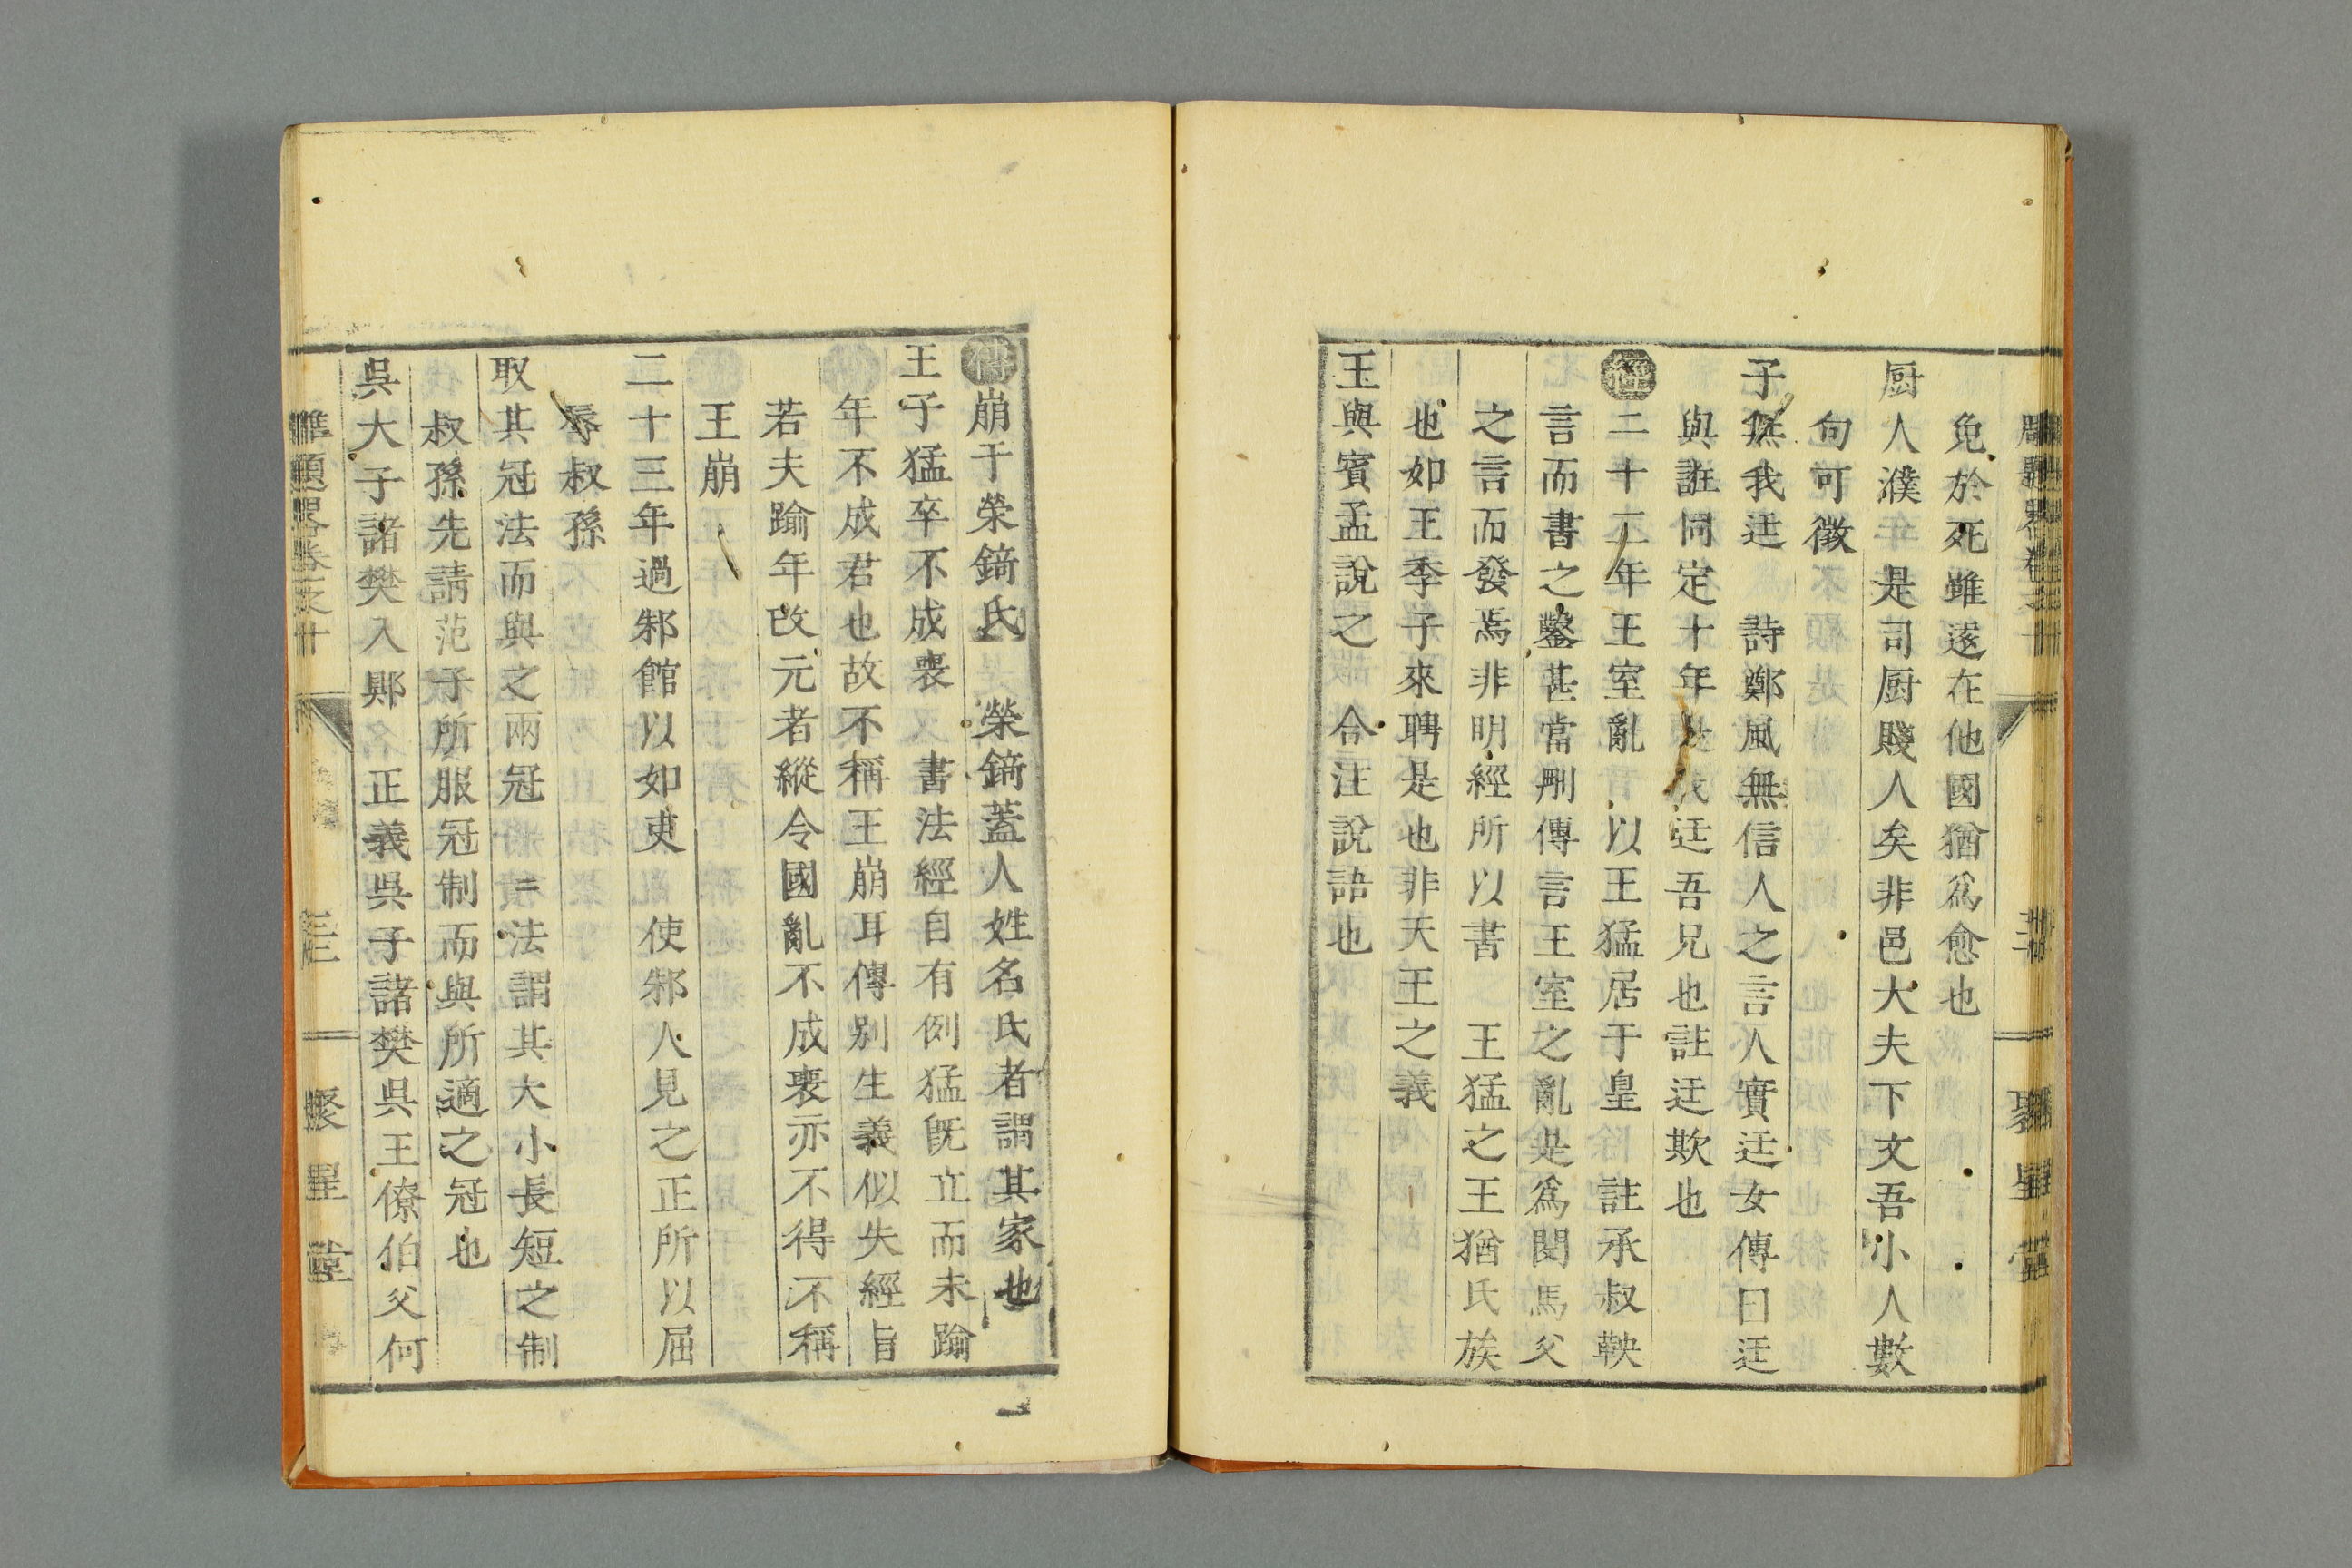 免於死雖逐在他國猶爲愈也
厨人濮 是司厨賤人矣非邑大夫下文吾小人數
句可徵
子無我迋 詩鄭風無信人之言人實迋女傳曰迋
與誑同定十年是我迋吾兄也註迋欺也
經二十二年王室亂 以王猛居于皇 註承叔鞅
言而書之鑿甚當刪傳言王室之亂是爲閔馬父
之言而發焉非明經所以書 王猛之王猶氏族
也如王季子來聘是也非天王之義
王與賓孟說之 合注說語也
傳崩于榮錡氏 榮錡蓋人姓名氏者謂其家也
王子猛卒不成喪 書法經自有例猛既立而未踰
年不成君也故不稱王崩耳傳别生義似失經旨
若夫踰年改元者縱令國亂不成喪亦不得不稱
王崩
二十三年過邾館以如吏 使邾人見之正所以屈
辱叔孫
取其冠法而與之兩冠 法謂其大小長短之制
叔孫先請范子所服冠制而與所適之冠也
吳大子諸樊入郹 正義吳子諸樊吳王僚伯父何
雕題畧卷之十
聚星堂